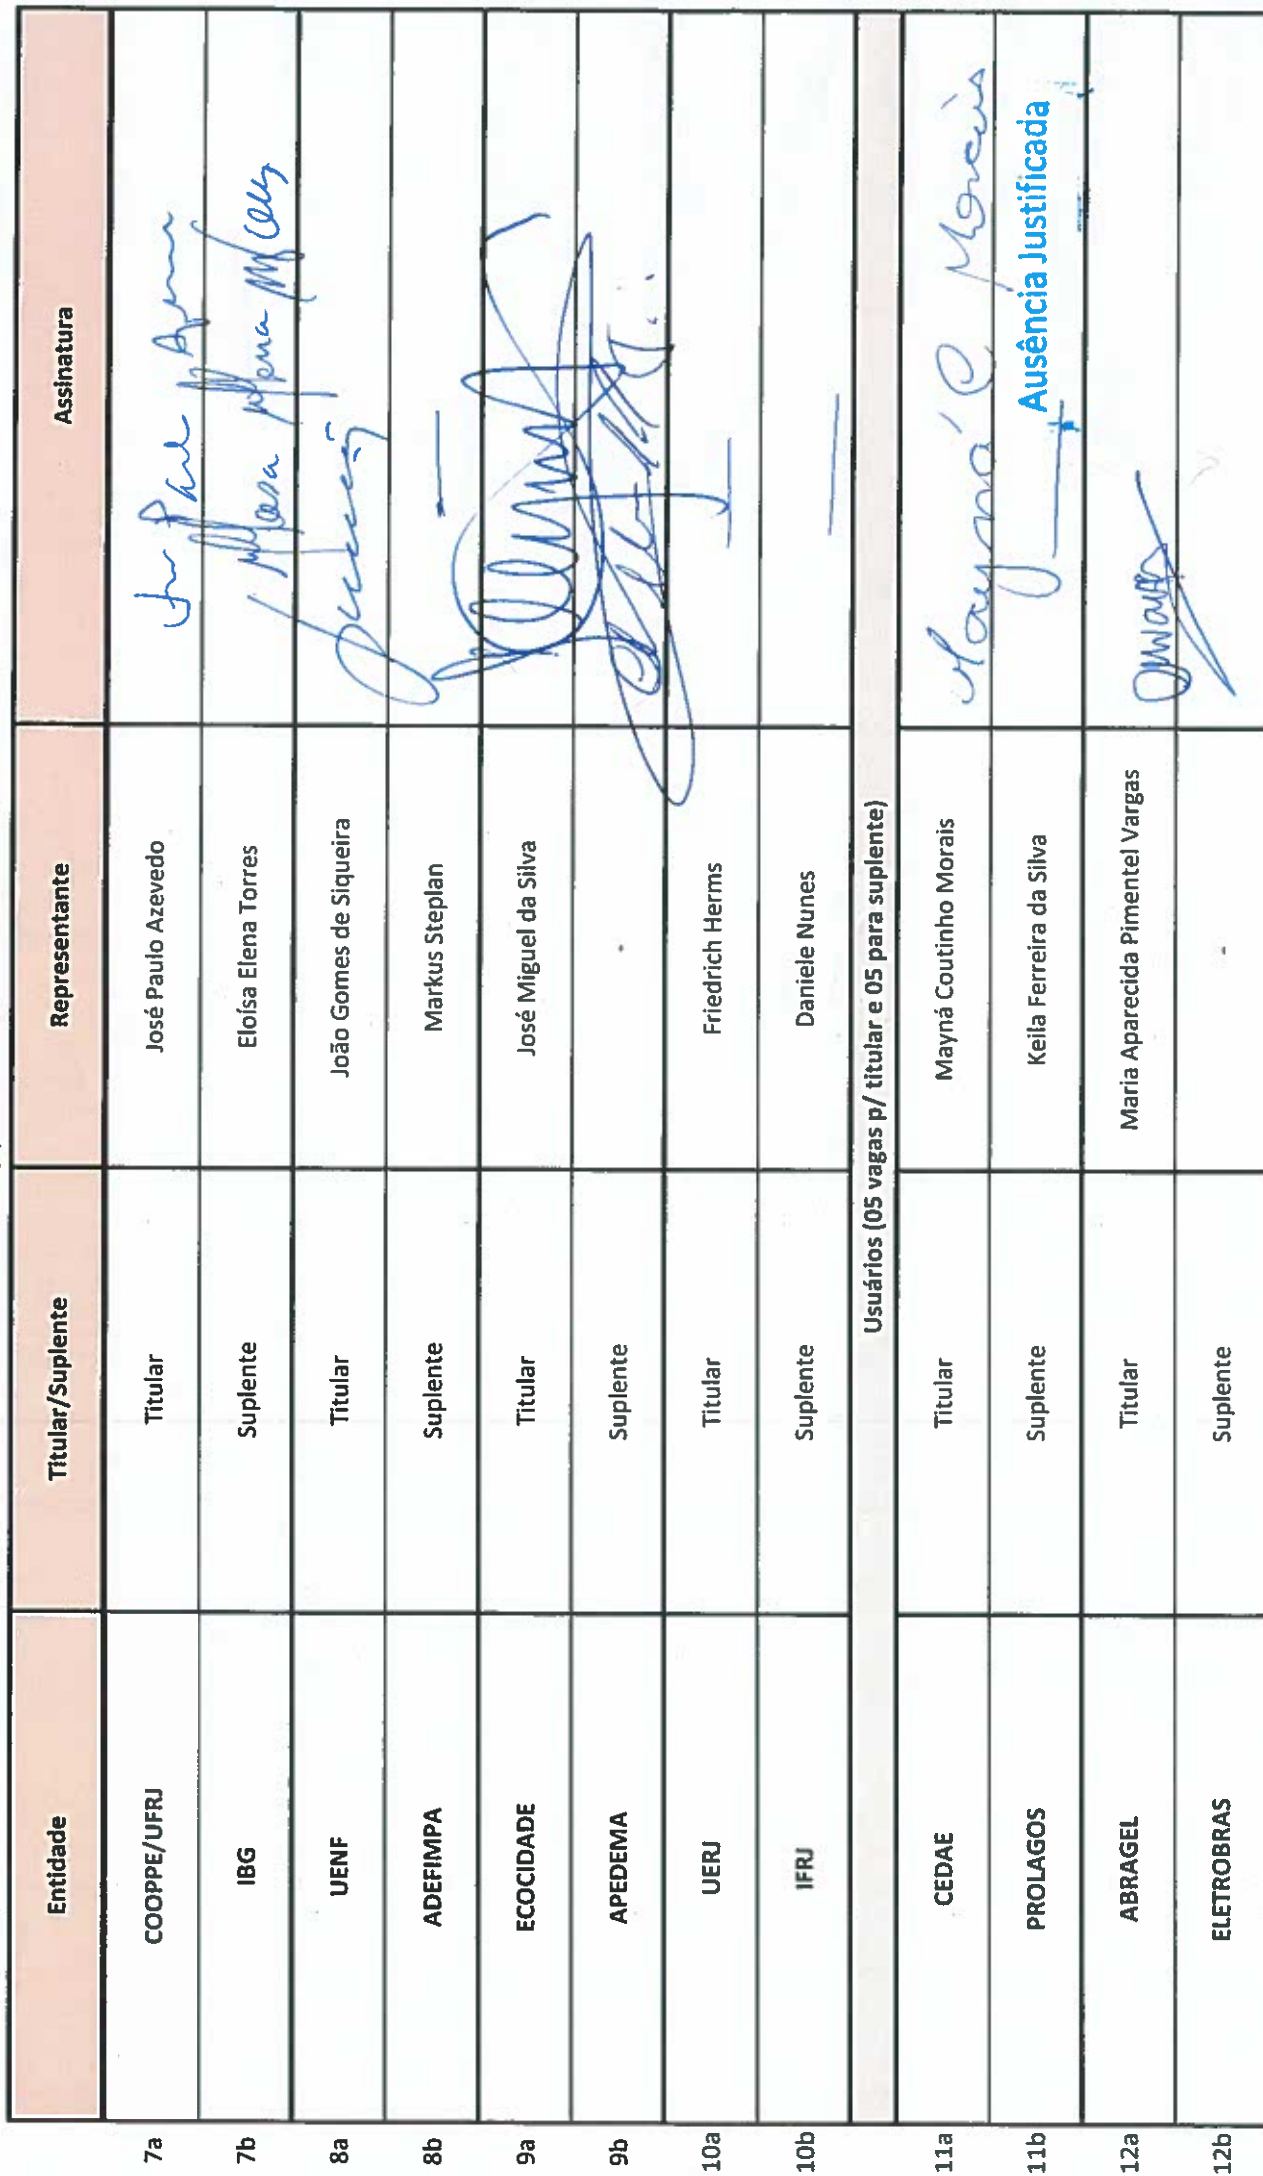 Entidade Titular/Suplente Representante Assinatura
7a COOPPE/UFRJ Titular José Paulo Azevedo
7b IBG Suplente Eloísa Elena Torres
8a UENF Titular João Gomes de Siqueira
8b ADEFIMPA Suplente Markus Steplan —
9a ECOCIDADE Titular José Miguel da Silva
9b APEDEMA Suplente -
10a UERJ Titular Friedrich Herms —
10b IFRJ Suplente Daniele Nunes —
Usuários (05 vagas p/ titular e 05 para suplente)
11a CEDAE Titular Mayná Coutinho Morais Mayná C Morais
11b PROLAGOS Suplente Keila Ferreira da Silva — Ausência Justificada
12a ABRAGEL Titular Maria Aparecida Pimentel Vargas
12b ELETROBRAS Suplente -